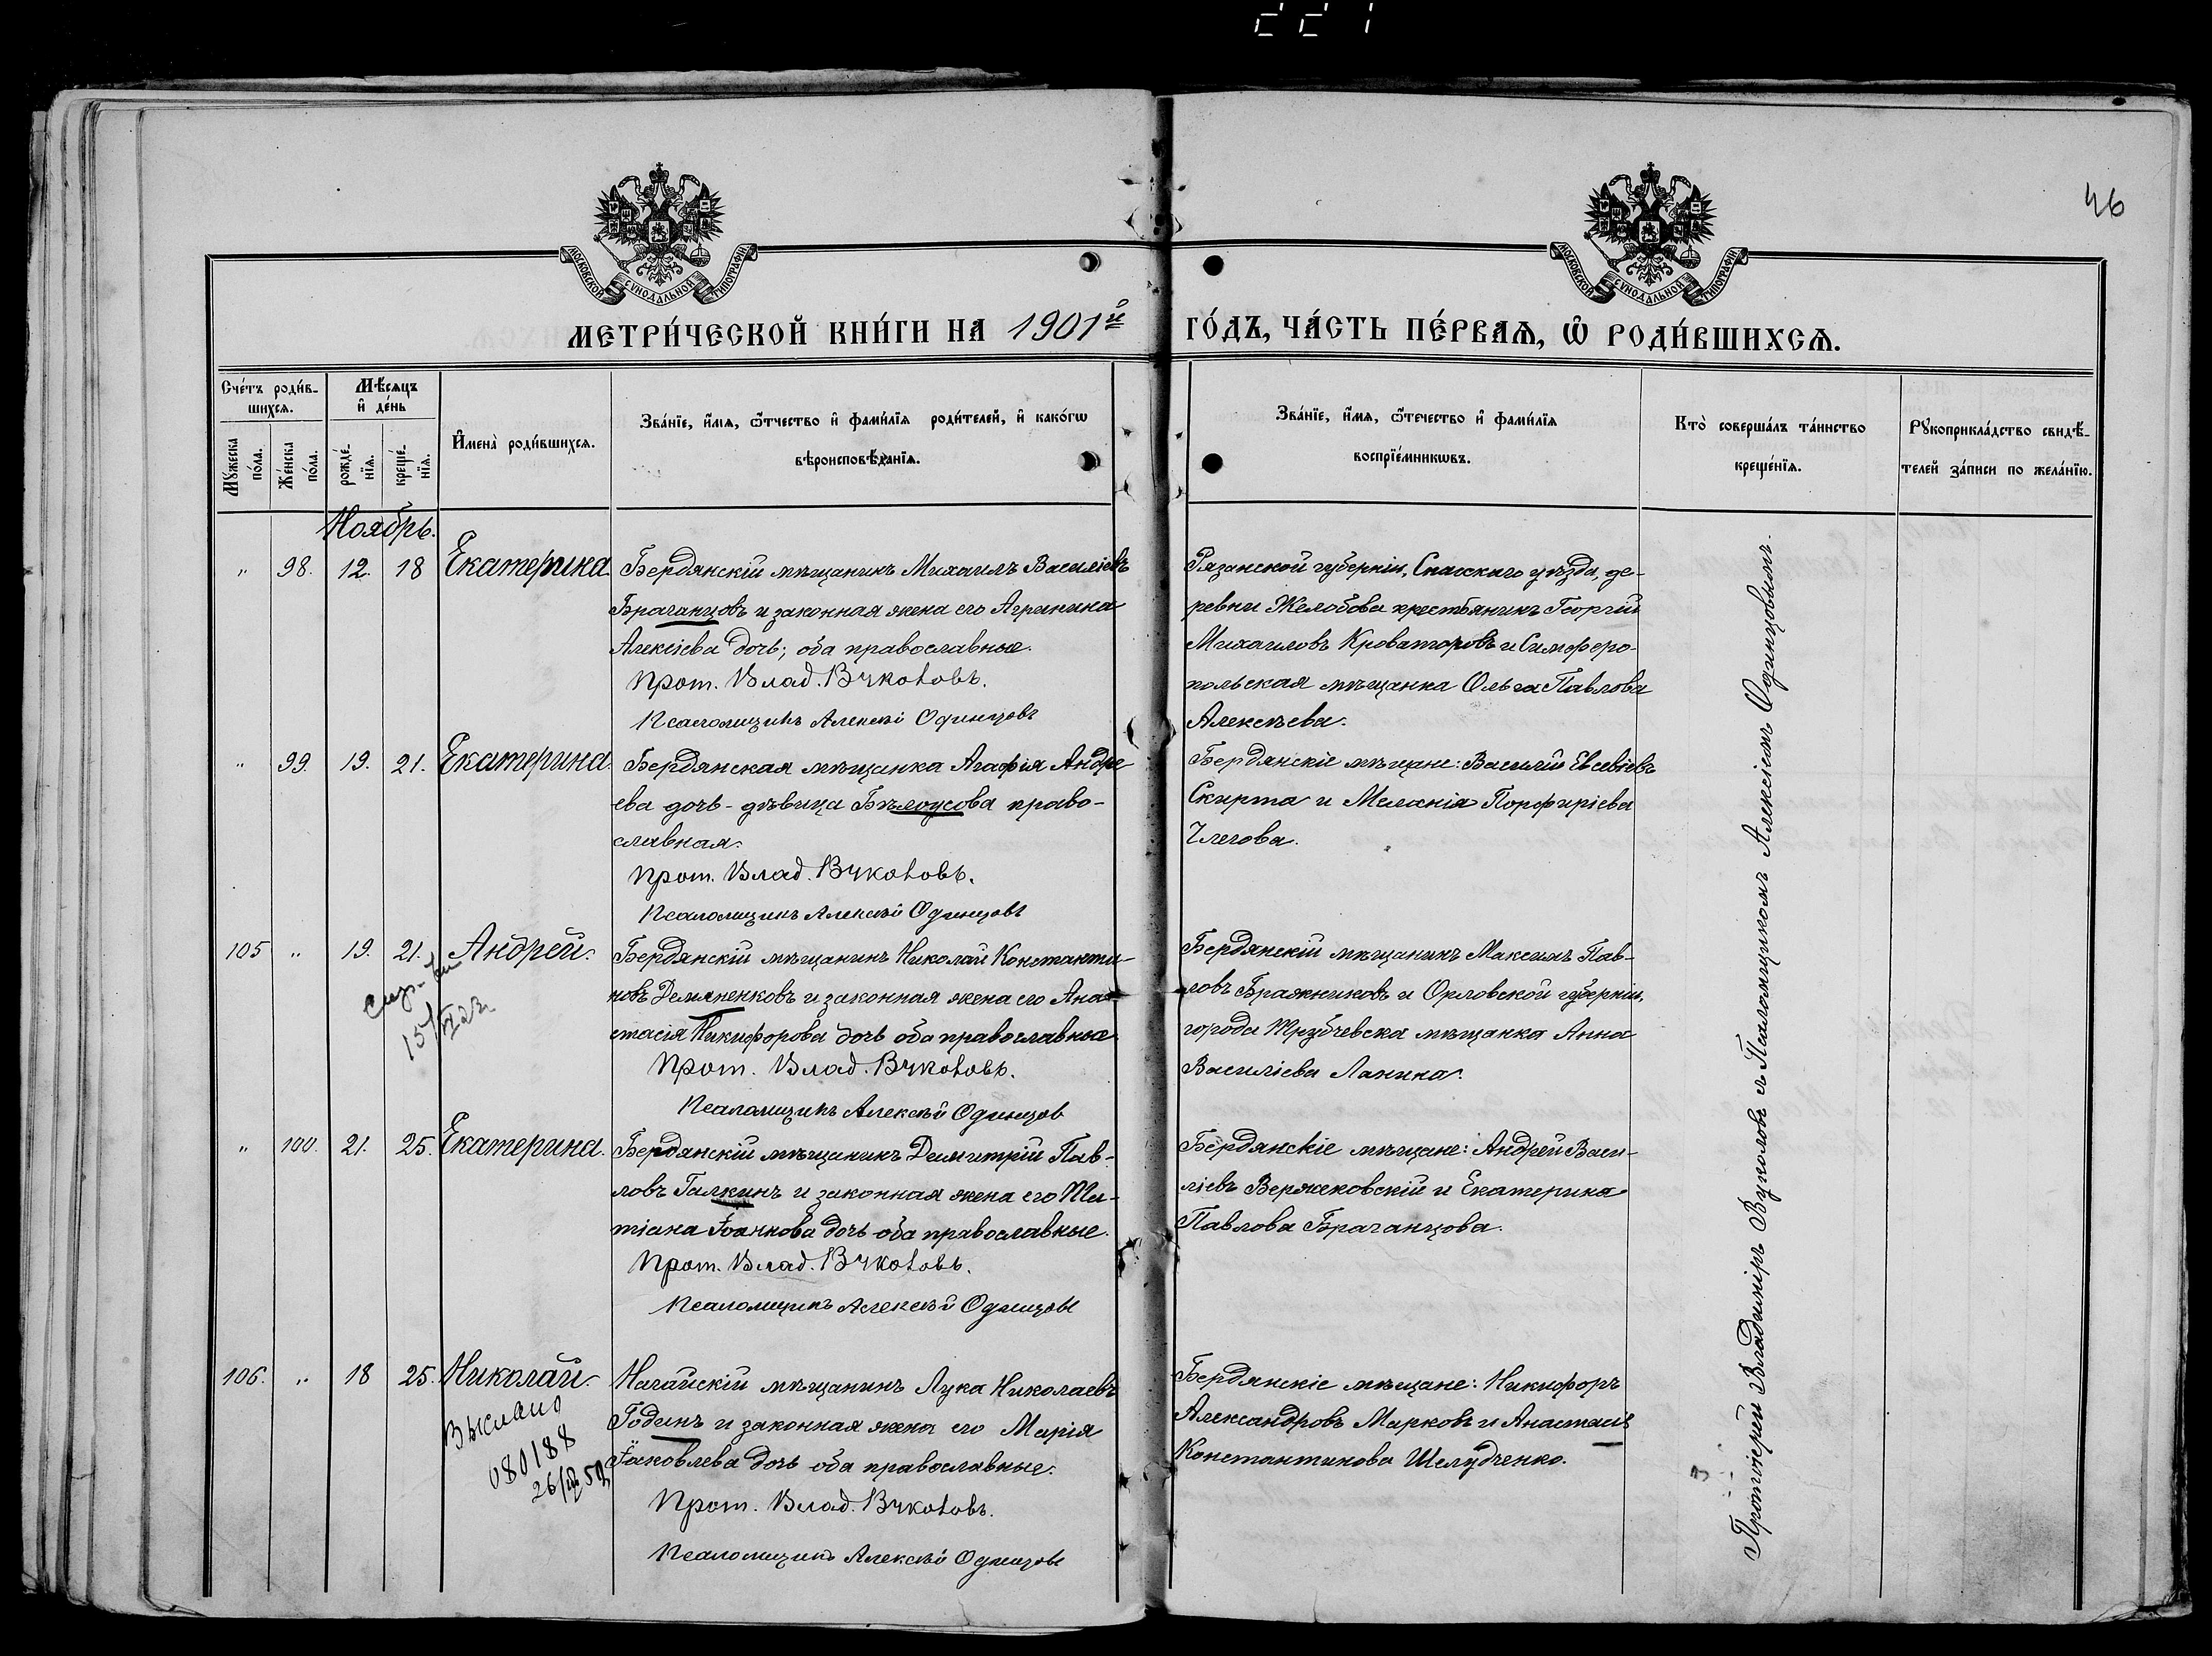 221
46
МОСКОВСКОЙ СѴНОДАЛЬНОЙ ТИПОГРАФІИ
МОСКОВСКОЙ СѴНОДАЛЬНОЙ ТИПОГРАФІИ
МЕТРИ́ЧЕСКОЙ КНИ́ГИ НА 1901й ГО́ДЪ, ЧА́СТЬ ПЕ́РВАѦ, Ѡ РОДИ́ВШИХСѦ.
Сче́тъ роди́в-
шихсѧ.
Мꙋжеска по́ла.
Же́нска по́ла.
Мѣ́сѧцъ
и҆ де́нь
рожде́-
нїѧ.
креще́-
нїѧ.
И҆мена̀ роди́вшихсѧ.
Зва́нїе, и҆́мѧ, ѻ҆́тчество и҆ фами́лїѧ роди́телей, и҆ како́гѡ
вѣроисповѣ́данїѧ.
Зва́нїе, и҆́мѧ, ѻ҆́течество и҆ фами́лїѧ
воспрїе́мникѡвъ.
Кто̀ соверша́лъ та́инство
креще́нїѧ.
Рꙋкоприкла́дство свидѣ́-
телей за́писи по жела́нїю.
Ноябрь.
" 98. 12. 18 Екатерина.
Бердянскій мѣщанинъ Михаилъ Василіевъ
Браганцовъ и законная жена его Агрипина
Алексіева дочь; оба православные.
Прот. Влад. Вуколовъ.
Псаломщикъ Алексѣй Одинцовъ
Рязанской губерніи, Спасскаго уѣзда, де-
ревни Желобова крестьянинъ Георгій
Михаиловъ Кроваторовъ и Симферо-
польская мѣщанка Ольга Павлова
Алексѣева.
" 99. 19. 21. Екатерина.
Бердянская мѣщанка Агафія Андре
ева дочь - дѣвица Бѣлоусова право-
славная.
Прот. Влад. Вуколовъ.
Псаломщикъ Алексѣй Одинцовъ
Бердянскіе мѣщане: Василій Евсевіевъ
Скирта и Меланія Порфиріева
Члегова.
105 " 19. 21. Андрей.
15/
Бердянскій мѣщанинъ Николай Константи-
новъ Демяненковъ и законная жена его Ана-
стасія Никифорова дочь оба православные
Прот. Влад. Вуколовъ.
Псаломщикъ Алексѣй Одинцов
Бердянскій мѣщанинъ Максимъ Пав-
ловъ Бражниковъ и Орловской губерніи,
города Трубчевска мѣщанка Анна
Василіева Ланина.
" 100. 21. 25. Екатерина.
Бердянскій мѣщанинъ Димитрій Пав-
ловъ Галкинъ и законная жена его Та-
тіана Іоаннова дочь оба православные.
Прот. Влад. Вуколовъ.
Псаломщикъ Алексѣй Одинцовъ
Бердянскіе мѣщане: Андрей Васи-
ліевъ Вержековскій и Екатерина
Павлова Браганцова.
106. " 18 25. Николай.
Выслано
080188
Ногайскій мѣщанинъ Лука Николаевъ
Годинъ и законная жена его Марія
Іаковлева дочь оба православные.
Прот. Влад. Вуколовъ.
Псаломщикъ Алексѣй Одинцовъ
Бердянскіе мѣщане: Никифоръ
Александровъ Марковъ и Анастасія
Константинова Шелудченко.
Протоіерей Владиміръ Вуколовъ съ Псаломщикомъ Алексіемъ Одинцовымъ.